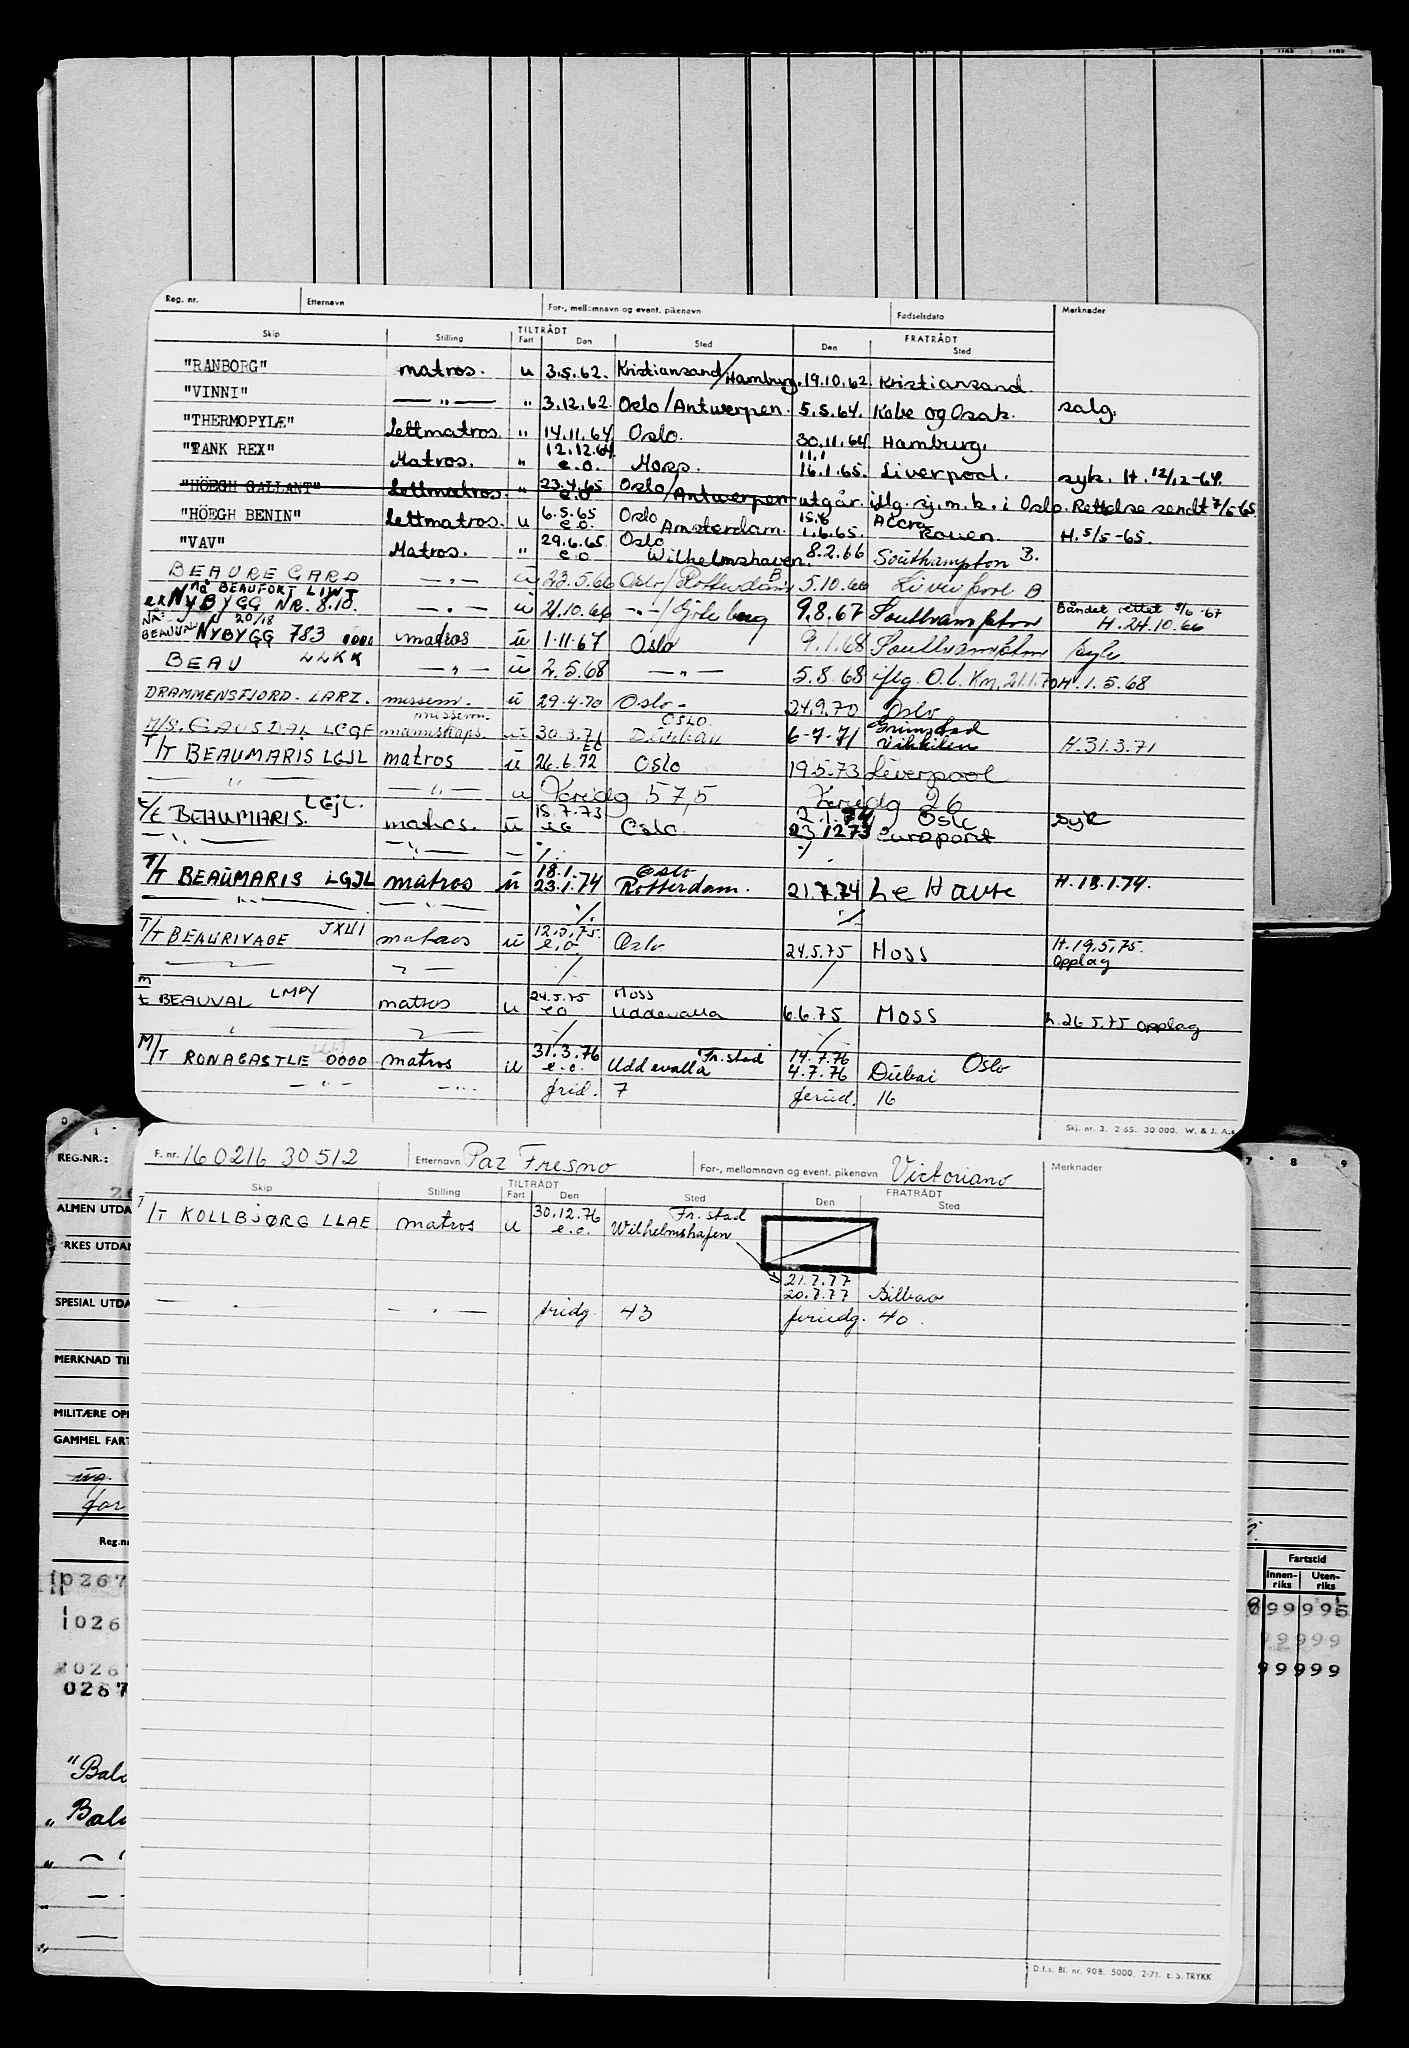 Reg. nr. Etternavn For-, mellomnavn og event. pikenavn Fødselsdato Merknader
TILTRÅDT FRATRÅDT
Skip Stilling Fart Den Sted Den Sted
"RANBORG" matros. u 3.5.62. Kristiansand/Hamburg. 19.10.62. Kristiansand
"VINNI" — " — " 3.12.62. Oslo/Antwerpen. 5.5.64. Kobe og Osak. salg.
"THERMOPYLÆ" Lettmatros. " 14.11.64 Oslo. 30.11.64 Hamburg.
"TANK REX" Matros. " 12.12.64 e.o. Moss. 11.1 16.1.65. Liverpool. syk. H. 12/12-64.
"HÖEGH GALLANT" Lettmatros. " 23.4.65 e.o Oslo/Antwerpen utgår. iflg. sj.m.k. i Oslo. Rettelse sendt 7/5-65.
"HÖEGH BENIN" Lettmatros. u 6.5.65 e.o. Oslo Amsterdam. 15.6 1.6.65. Accra Rouen. H. 5/5-65.
"VAV" Matros. " 29.6.65 e.o Oslo Wilhelmshaven. 8.2.66 Southampton B.
BEAUREGARD — " — u 23.5.66 Oslo/Rotterdam B 5.10.66 Liverpool B
nå BEAUFORT LIWT
ex NYBYGG NR. 8.10. — " — u 21.10.66 — " —/Göteborg 9.8.67 Southampton Båndet rettet 9/6-67 H. 24.10.66
NYBYGG 783 0000 matros u 1.11.67 Oslo 9.1.68 Southampton syk
BEAU LLKK — " — u 2.5.68 — " — 5.8.68 iflg. O.l. Km. 21.1.70 H. 1.5.68
DRAMMENSFJORD - LARZ. messem. u 29.4.70 Oslo - 24.9.70 Oslo
M/S. GAUSDAL LCQF messem. mannskaps. u 30.3.71 OSLO. Durban 6-7-71 Grimstad Vikkilen H. 31.3.71
T/T BEAUMARIS LGJL matros u 26.6.72 EO Oslo 19.5.73 Liverpool
— " — — " — u Feridg 575 Feridg 26
t/t BEAUMARIS. LGJL. matros. u 15.7.73 e.o Oslo. 2.1.74 23.12.73 Oslo Europort syk
— " — — " — — ./. ./.
T/T BEAUMARIS LGJL matros u 18.1. 23.1.74 Oslo Rotterdam. 21.7.74 Le Havre H. 18.1.74.
— " — — " — ./. ./.
T/T BEAURIVAGE JXUI matros u 12.5.75. e.o. Oslo 24.5.75 Moss H. 19.5.75. Opplag
— " — — " — / /
m/t BEAUVAL LMPY matros u 24.5.75 eo Moss Uddevalla 6.6.75 Moss h. 26.5.75 Opplag
— " — — " — ./. ./.
M/T RONACASTLE 0000 matros u 31.3.76 e.o. Fr.stad Uddevalla 14.7.76 4.7.76 Dubai Oslo
— " — — " — frid. 7 feried. 16
Skj. nr. 3. 2-65. 30 000. W. & J. A.s
F. nr. 160216 30512 Etternavn Paz Fresno For-, mellomnavn og event. pikenavn Victoriano Merknader
TILTRÅDT FRATRÅDT
Skip Stilling Fart Den Sted Den Sted
T/T KOLLBJØRG LLAE matros u 30.12.76 e.o. Fr.stad Wilhelmshafen
21.7.77
20.7.77 Bilbao
— " — — " — fridg. 43 feriedg. 40.
D.f.s. Bl. nr. 908. 5000. 2-71. E. S. TRYKK
REG.NR.:
ALMEN UTDA
RKES UTDAN
SPESIAL UTDA
MERKNAD TIL
MILITÆRE OPP
GAMMEL FART
for
Reg.nr
0267
1026
0267
0267
"Bal
" Bal
7 8 9
Fartstid
Innen-riks Uten-riks
99999
99999